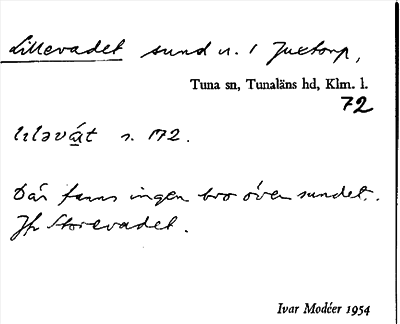 Lillevadet sund n. / Juxtorp,
Tuna sn, Tunaläns hd, Klm. l.
72
s. 172.
Där fanns ingen bro över sundet.
Jfr Storevadet.
Ivar Modéer 1954